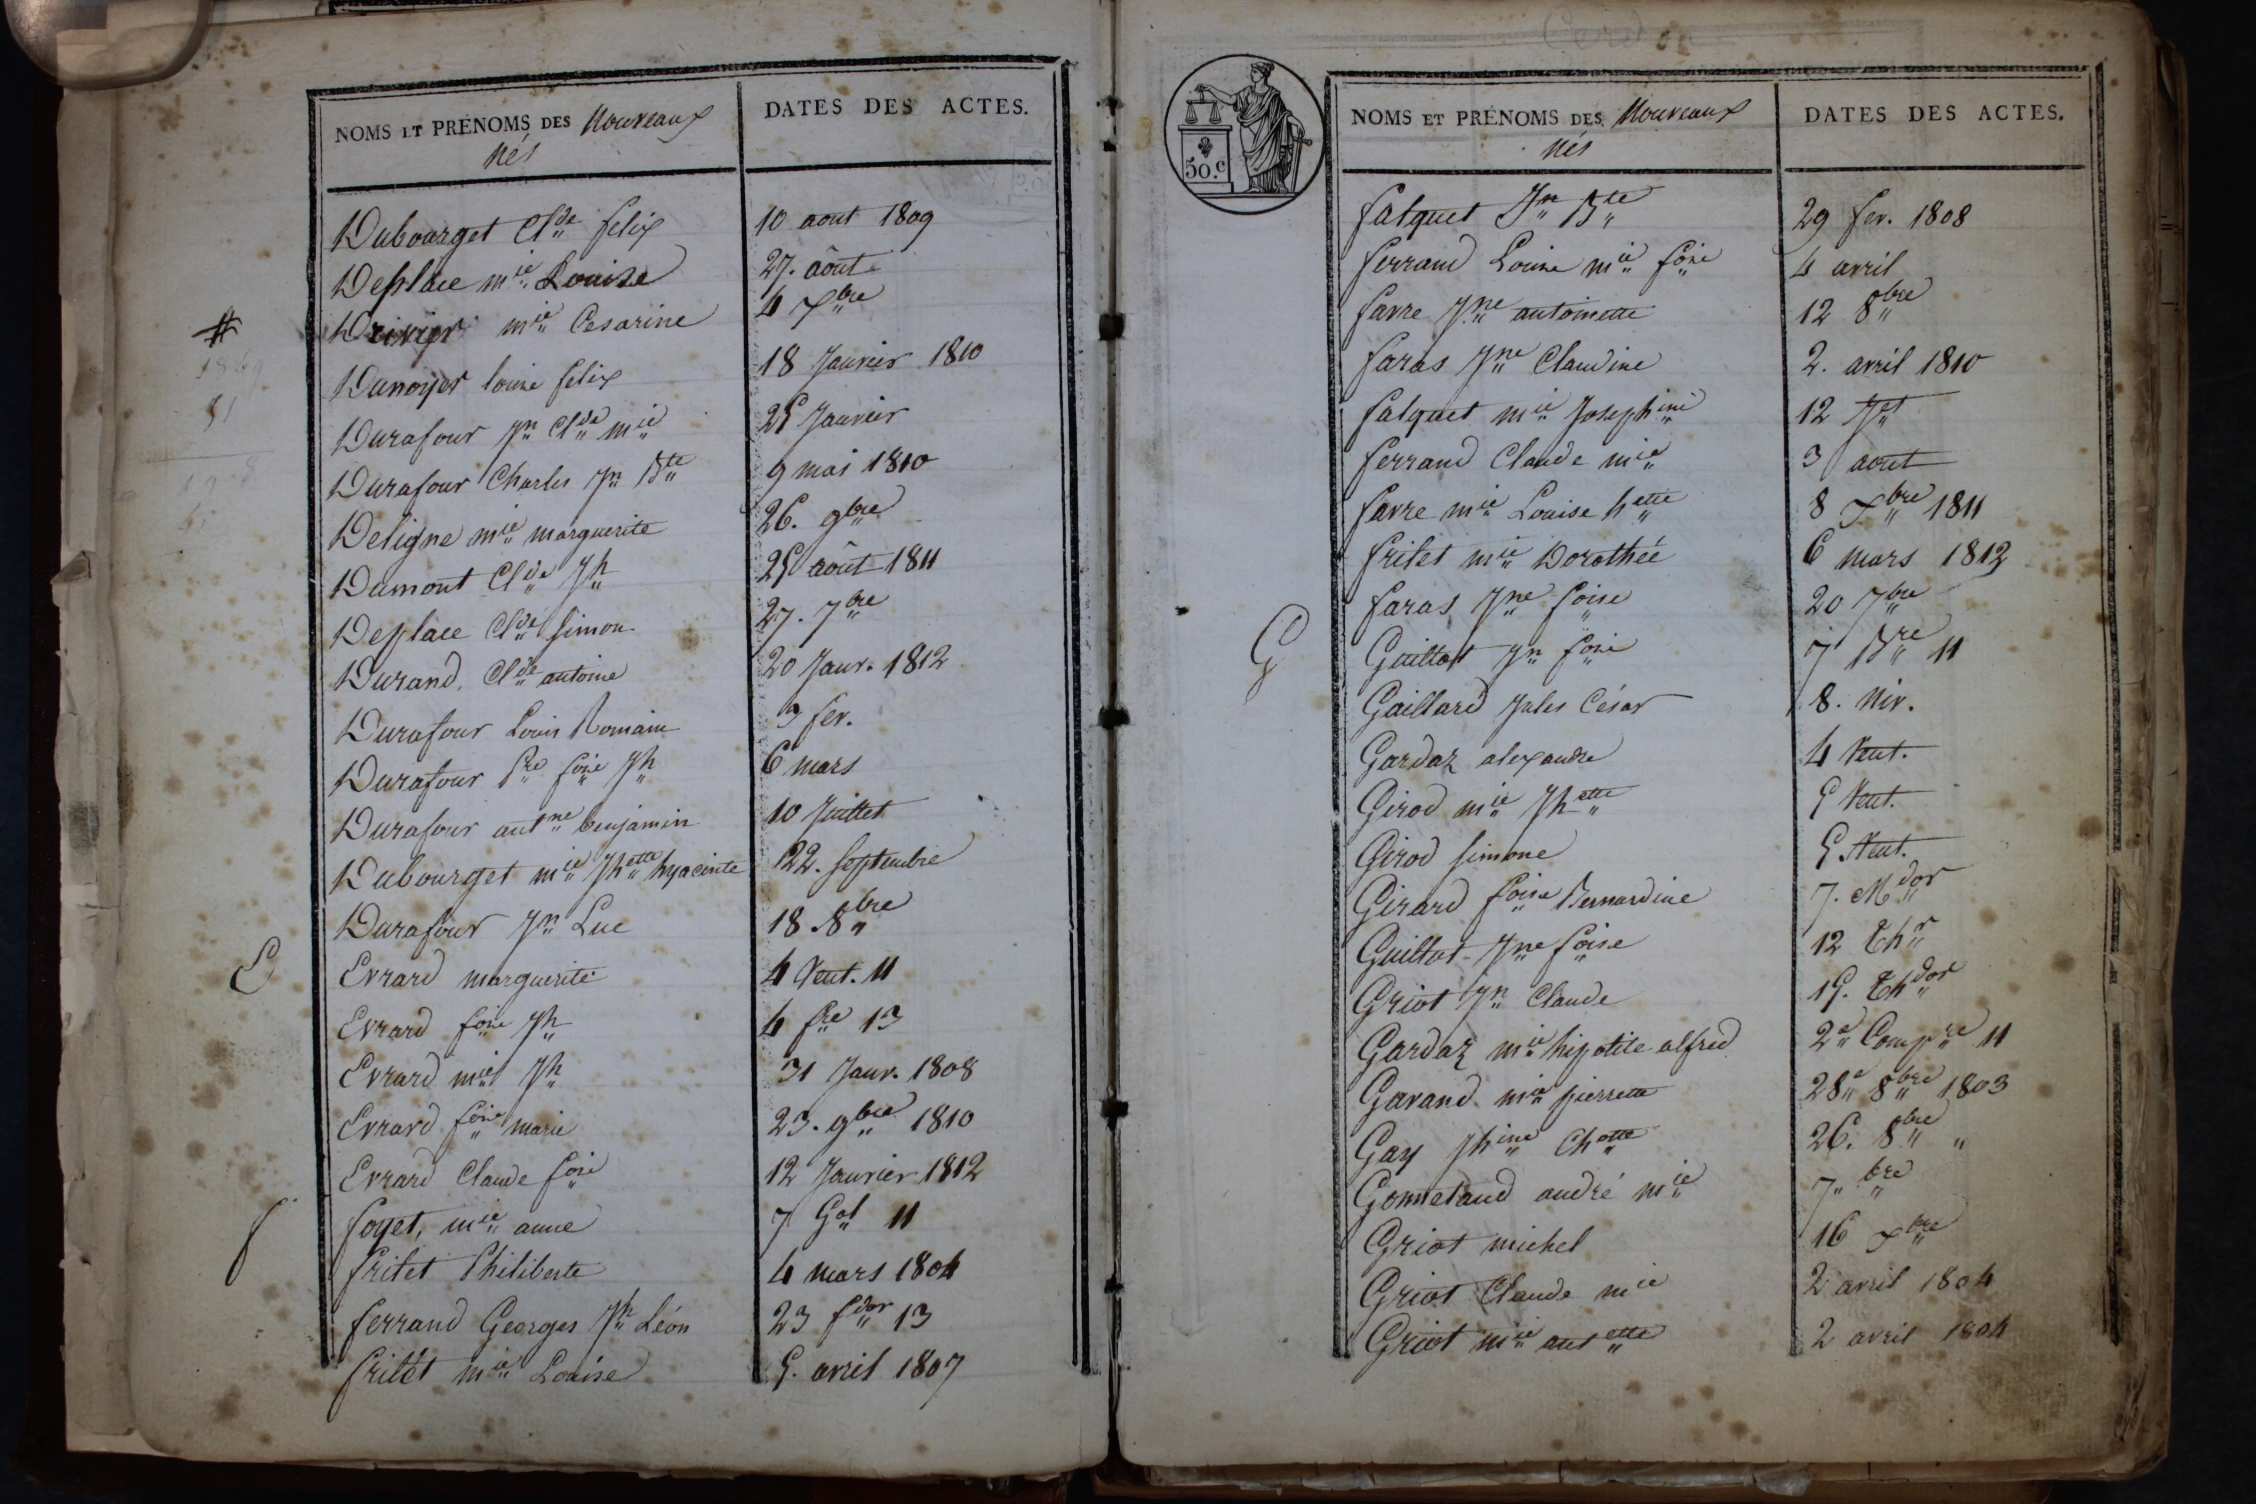 NOMS ET PRÉNOMS DES Nouveaux nés
DATES DES ACTES.
Dubourget Cl.de felix 10 aout 1809
Desplace m.ie Louise 27. août
# m.ie Cesarine 4 X.bre
Dunoyer louise felix 18 Janvier 1810
Durafour J.n Cl.de m.ie 25 Janvier
Durafour Charles J.n B.te 9 mai 1810
Deligne m.ie marguerite 26. 9.bre
Dumont Cl.de J.h 25 août 1811
Desplace Cl.de simon 27. 7.bre
Durand. Cl.de antoine 20 Janv. 1812
Durafour Louis Romain 3 fev.
Durafour P.re f.ois J.h 6 mars
Durafour ant.ne benjamin 10 Juillet
Dubourget m.ie J.h.ette hyacinte 22. septembre
Durafour J.n Luc 18. 8.bre
E
Evrard marguerite 4 Vent. 11
Evrard f.ois J.h 4 f.re 13
Evrard m.ie J.h 31 Janv. 1808
Evrard f.oise marie 23. 9.bre 1810
Evrard Claude f.ois 12 Janvier 1812
f
foyet, m.ie anne 7 G.al 11
fritet Philiberte 4 mars 1804
ferrand Georges J.h Léon 23 f.dor 13
fritet m.ie Louise 5. avril 1807
50.c
NOMS ET PRÉNOMS DES Nouveaux nés
DATES DES ACTES.
falquet J.n B.te 29 fev. 1808
ferrand Louise m.ie f.oise 4 avril
favre J.ne antoinette 12 8.bre
faras J.ne Claudine 2. avril 1810
falquet m.ie Joseph.ine 12 J.et
ferrand Claude m.ie 3 aout
favre m.ie Louise h.ette 8 X.bre 1811
fritet m.ie Dorothée 6 mars 1812
faras J.ne f.oise 20 7.bre
G
Guillot J.n f.ois 7 B.re 11
Gaillard Jules César 8. Niv.
Gardaz alexandre 4 Vent.
Girod m.ie J.h.ette 5 Vent.
Girod simone 5 Vent.
Girard f.oise Bernardine 7. M.dor
Guillot J.ne f.oise 12 Th.r
Griot J.n Claude 15. Th.dor
Gardaz m.ie hipolite alfred 2.e Comp.re 11
Gavand m.ie pierrette 28.e 8.bre 1803
Gay J.h.ine Ch.otte 26. 8.bre "
andré m.ie 7. bre
Griot michel 16 X.bre
Griot Claude m.ie 2 avril 1804
Griot m.ie ant.ette 2 avril 1804